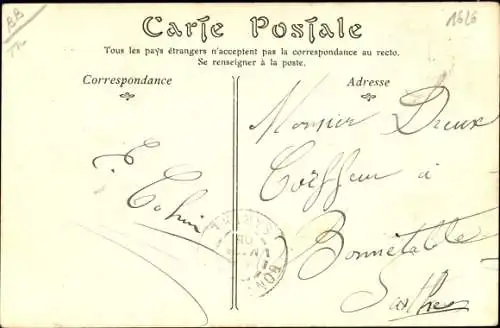 BB
1626
Carte Postale
Tous les pays étrangers n'acceptent pas la correspondance au recto.
Se renseigner à la poste.
Correspondance
Adresse
Monsieur Dreux
Coiffeur à
Bonnétable
Sarthe
E.